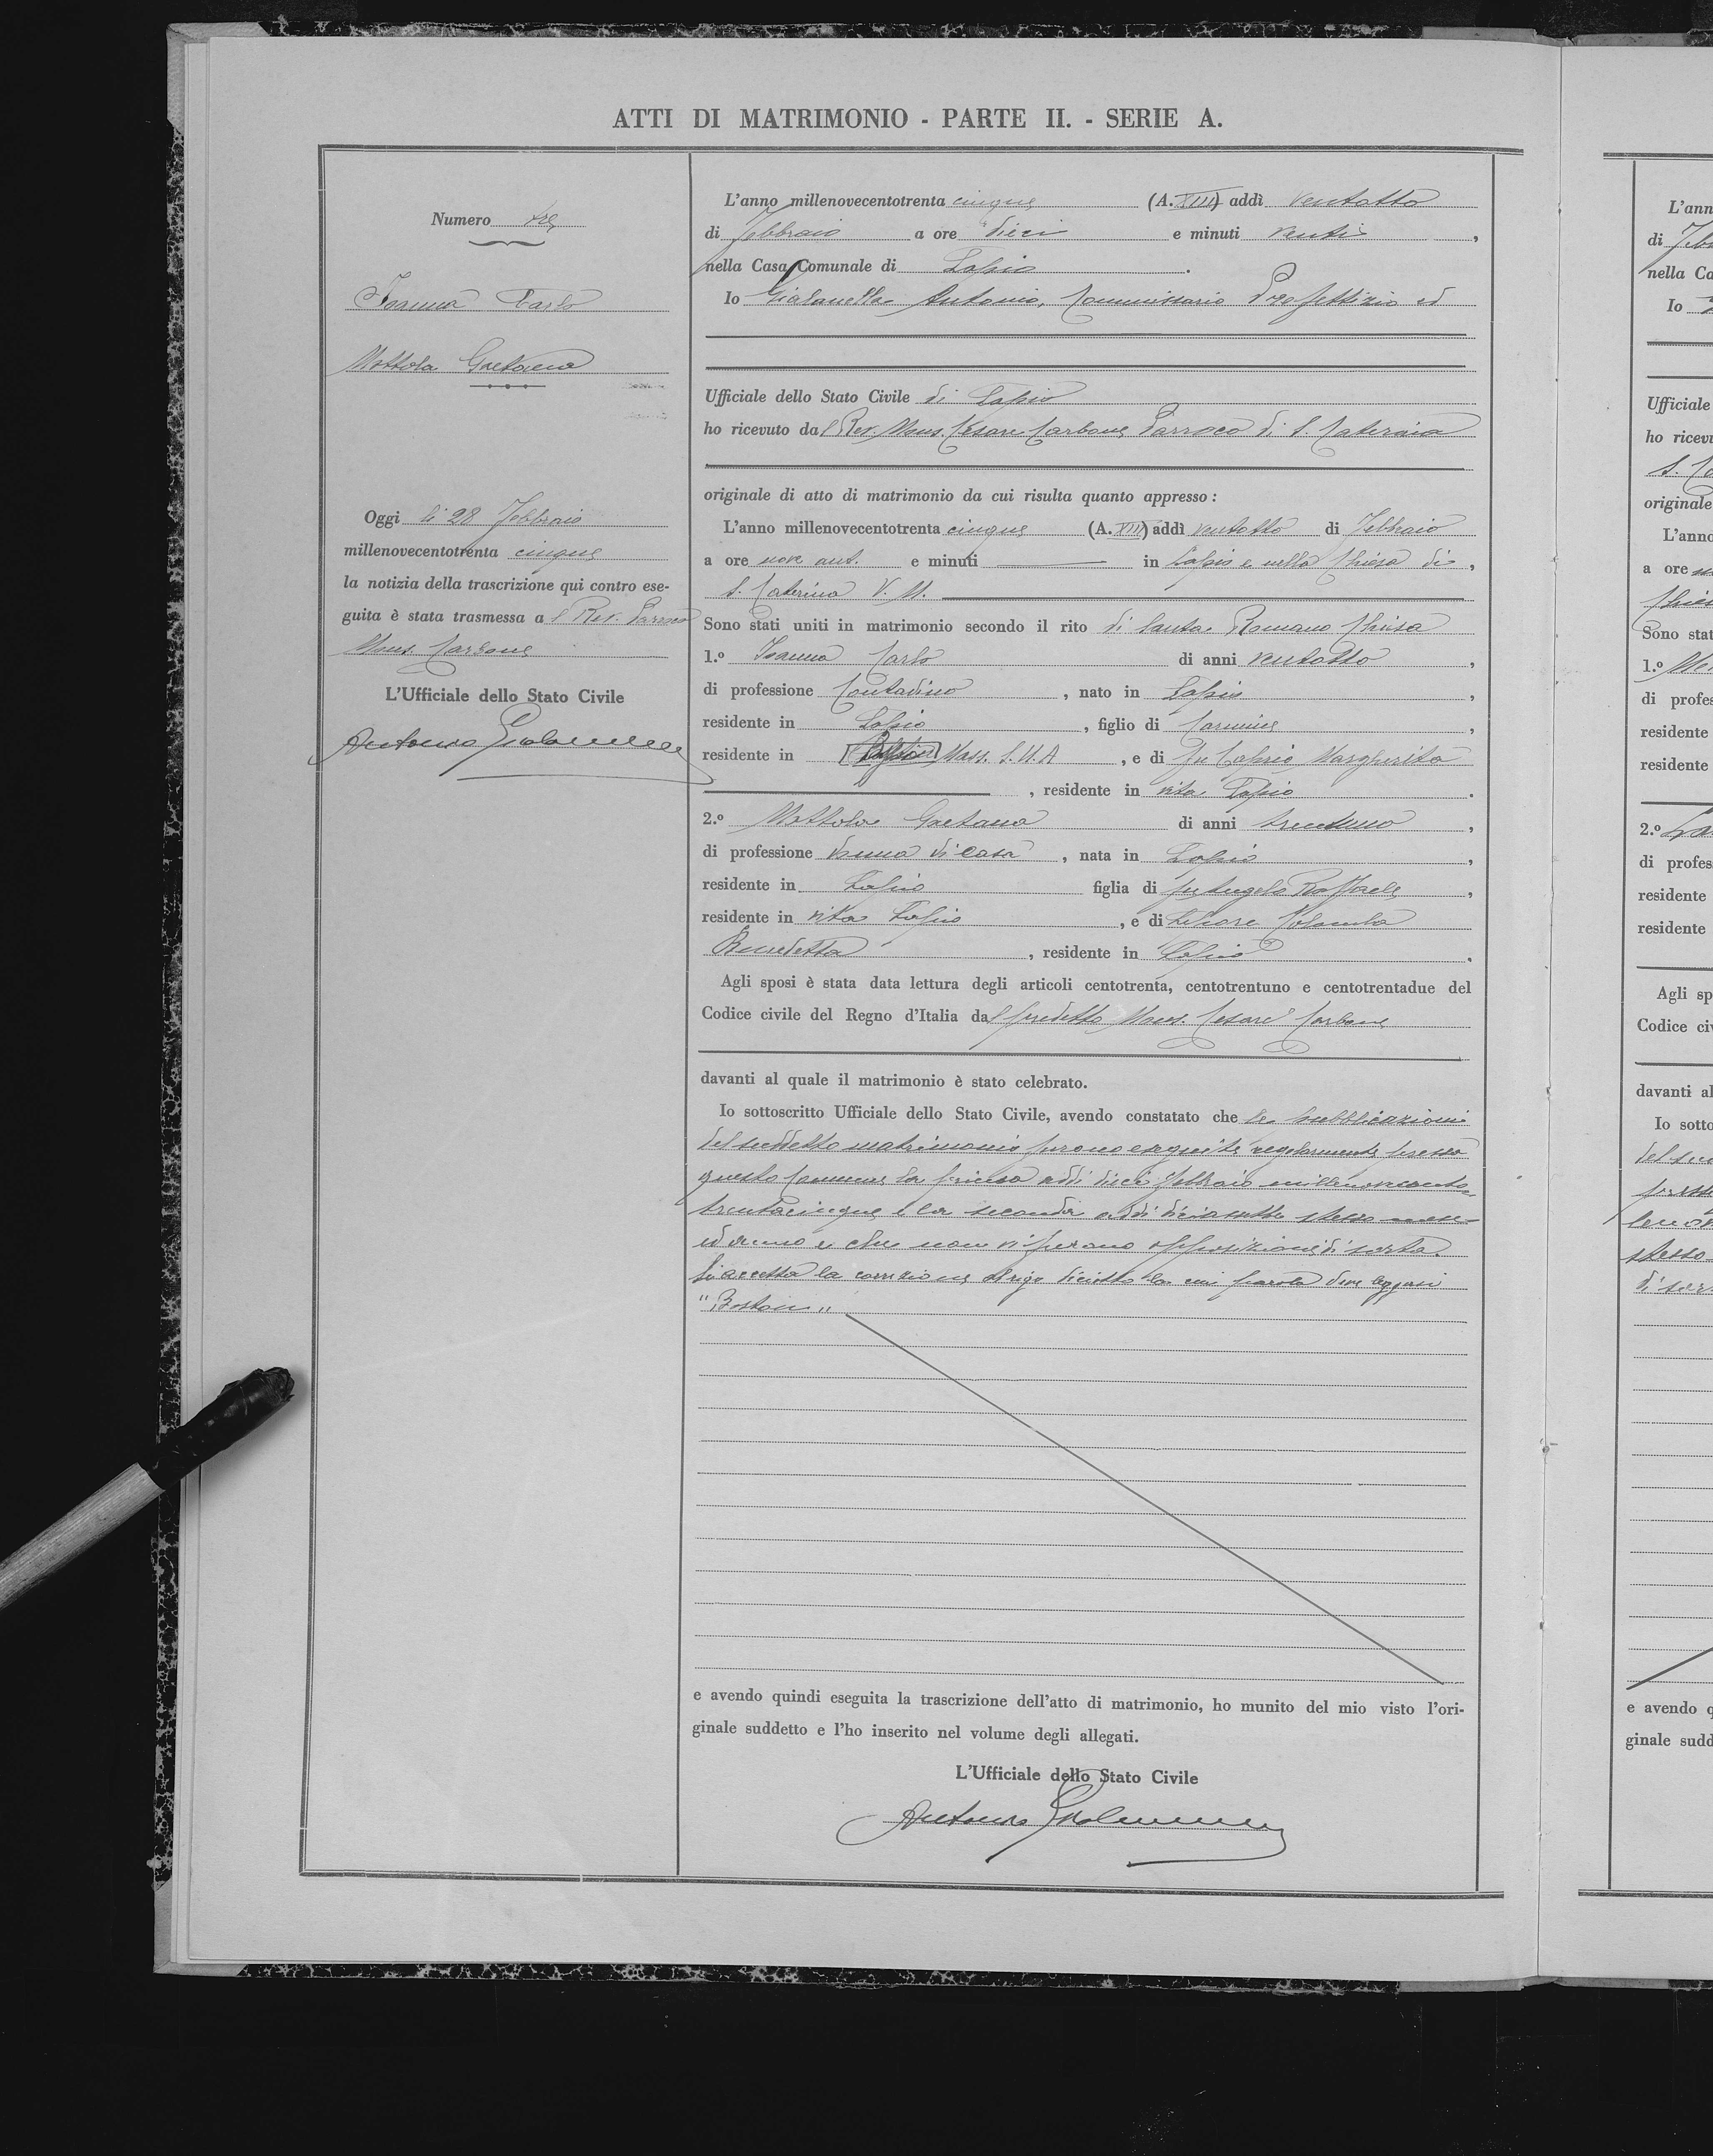 ATTI DI MATRIMONIO - PARTE II. - SERIE A.
Numero tre
Ioanna Carlo
Mottola Gaetana
Oggi li 28 Febbraio
millenovecentotrenta cinque
la notizia della trascrizione qui contro ese-
guita è stata trasmessa al Rev. Parroco
Mons. Carbone
L'Ufficiale dello Stato Civile
Antonio
L'anno millenovecentotrenta cinque (A. XIII) addì ventotto
di Febbraio a ore dieci e minuti venti ,
nella Casa Comunale di Lapio .
Io Antonio, Commissario Prefettizio ed
Ufficiale dello Stato Civile di Lapio
ho ricevuto dal Rev. Mons. Cesare Carbone Parroco di S. Caterina
originale di atto di matrimonio da cui risulta quanto appresso :
L'anno millenovecentotrenta cinque (A. XIII) addì ventotto di Febbraio
a ore nove ant. e minuti in Lapio e nella Chiesa di ,
S. Caterina V. M.
Sono stati uniti in matrimonio secondo il rito di Santa Romana Chiesa
1.º Ioanna Carlo di anni ventotto ,
di professione Contadino , nato in Lapio ,
residente in Lapio , figlio di Carmine ,
residente in Mass. S.U.A , e di fu Carpio Margherita
, residente in vita Lapio .
2.º Mottola Gaetana di anni trentuno ,
di professione donna di casa , nata in Lapio ,
residente in Lapio figlia di fu Angelo Raffaele ,
residente in vita Lapio , e di
Benedetta , residente in Lapio .
Agli sposi è stata data lettura degli articoli centotrenta, centotrentuno e centotrentadue del
Codice civile del Regno d'Italia dal predetto Mons. Cesare Carbone
davanti al quale il matrimonio è stato celebrato.
Io sottoscritto Ufficiale dello Stato Civile, avendo constatato che le pubblicazioni
del suddetto matrimonio furono eseguite regolarmente presso
questo Comune la prima addì dieci Febbraio millenovecento-
trentacinque e la seconda addì diciassette stesso mese
ed anno e che non vi furono opposizioni di sorta.
Si accetta la correzione al rigo diciotto la cui parola deve leggersi
"Boston"
e avendo quindi eseguita la trascrizione dell'atto di matrimonio, ho munito del mio visto l'ori-
ginale suddetto e l'ho inserito nel volume degli allegati.
L'Ufficiale dello Stato Civile
Antonio
L'ann
di Feb
nella Ca
Io
Ufficiale
ho ricev
S. Ca
originale
L'anno
a ore
Chies
Sono stat
1.º
di profes
residente
residente
2.º
di profes
residente
residente
Agli sp
Codice civ
davanti al
Io sotto
del su
stesso
di sor
e avendo q
ginale sudd